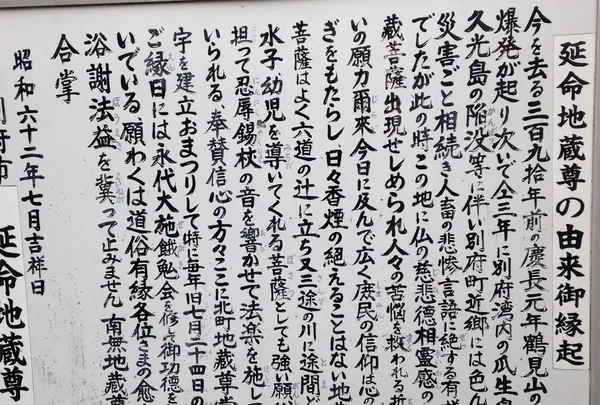 延命地蔵尊の由来御縁起
今を去る三百九拾年前の慶長元年鶴見山の
爆発が起り次いで仝三年に別府湾内の瓜生
久光島の陥没等に伴い別府町近郷には色ん
災害ごと相続き人畜の悲惨言語に絶する有様
でしたが此の時この地に仏の慈悲徳相霊感の
蔵菩薩出現せしめられ人々の苦悩を救われる
いの願力爾來今日に及んで広く庶民の信仰は心の
ぎをもたらし日々香煙の絶えることはない地
菩薩はよく六道の辻に立ち又三途の川に途間ど
水子幼児を導いてくれる菩薩としても強い願
担って忍辱錫杖の音を響かせて法楽を施して
いられる、奉賛信心の方々ここに北町地蔵尊堂
宇を建立おまつりして時に毎年旧七月二十四日の
ご縁日には永代大施餓勉会を修て御功徳を
いでいる願わくは道俗有縁各位さまの愈
浴謝法益を冀って止みません 南無地蔵尊
合掌
昭和六十二年七月吉祥日
別府市
延命地蔵尊